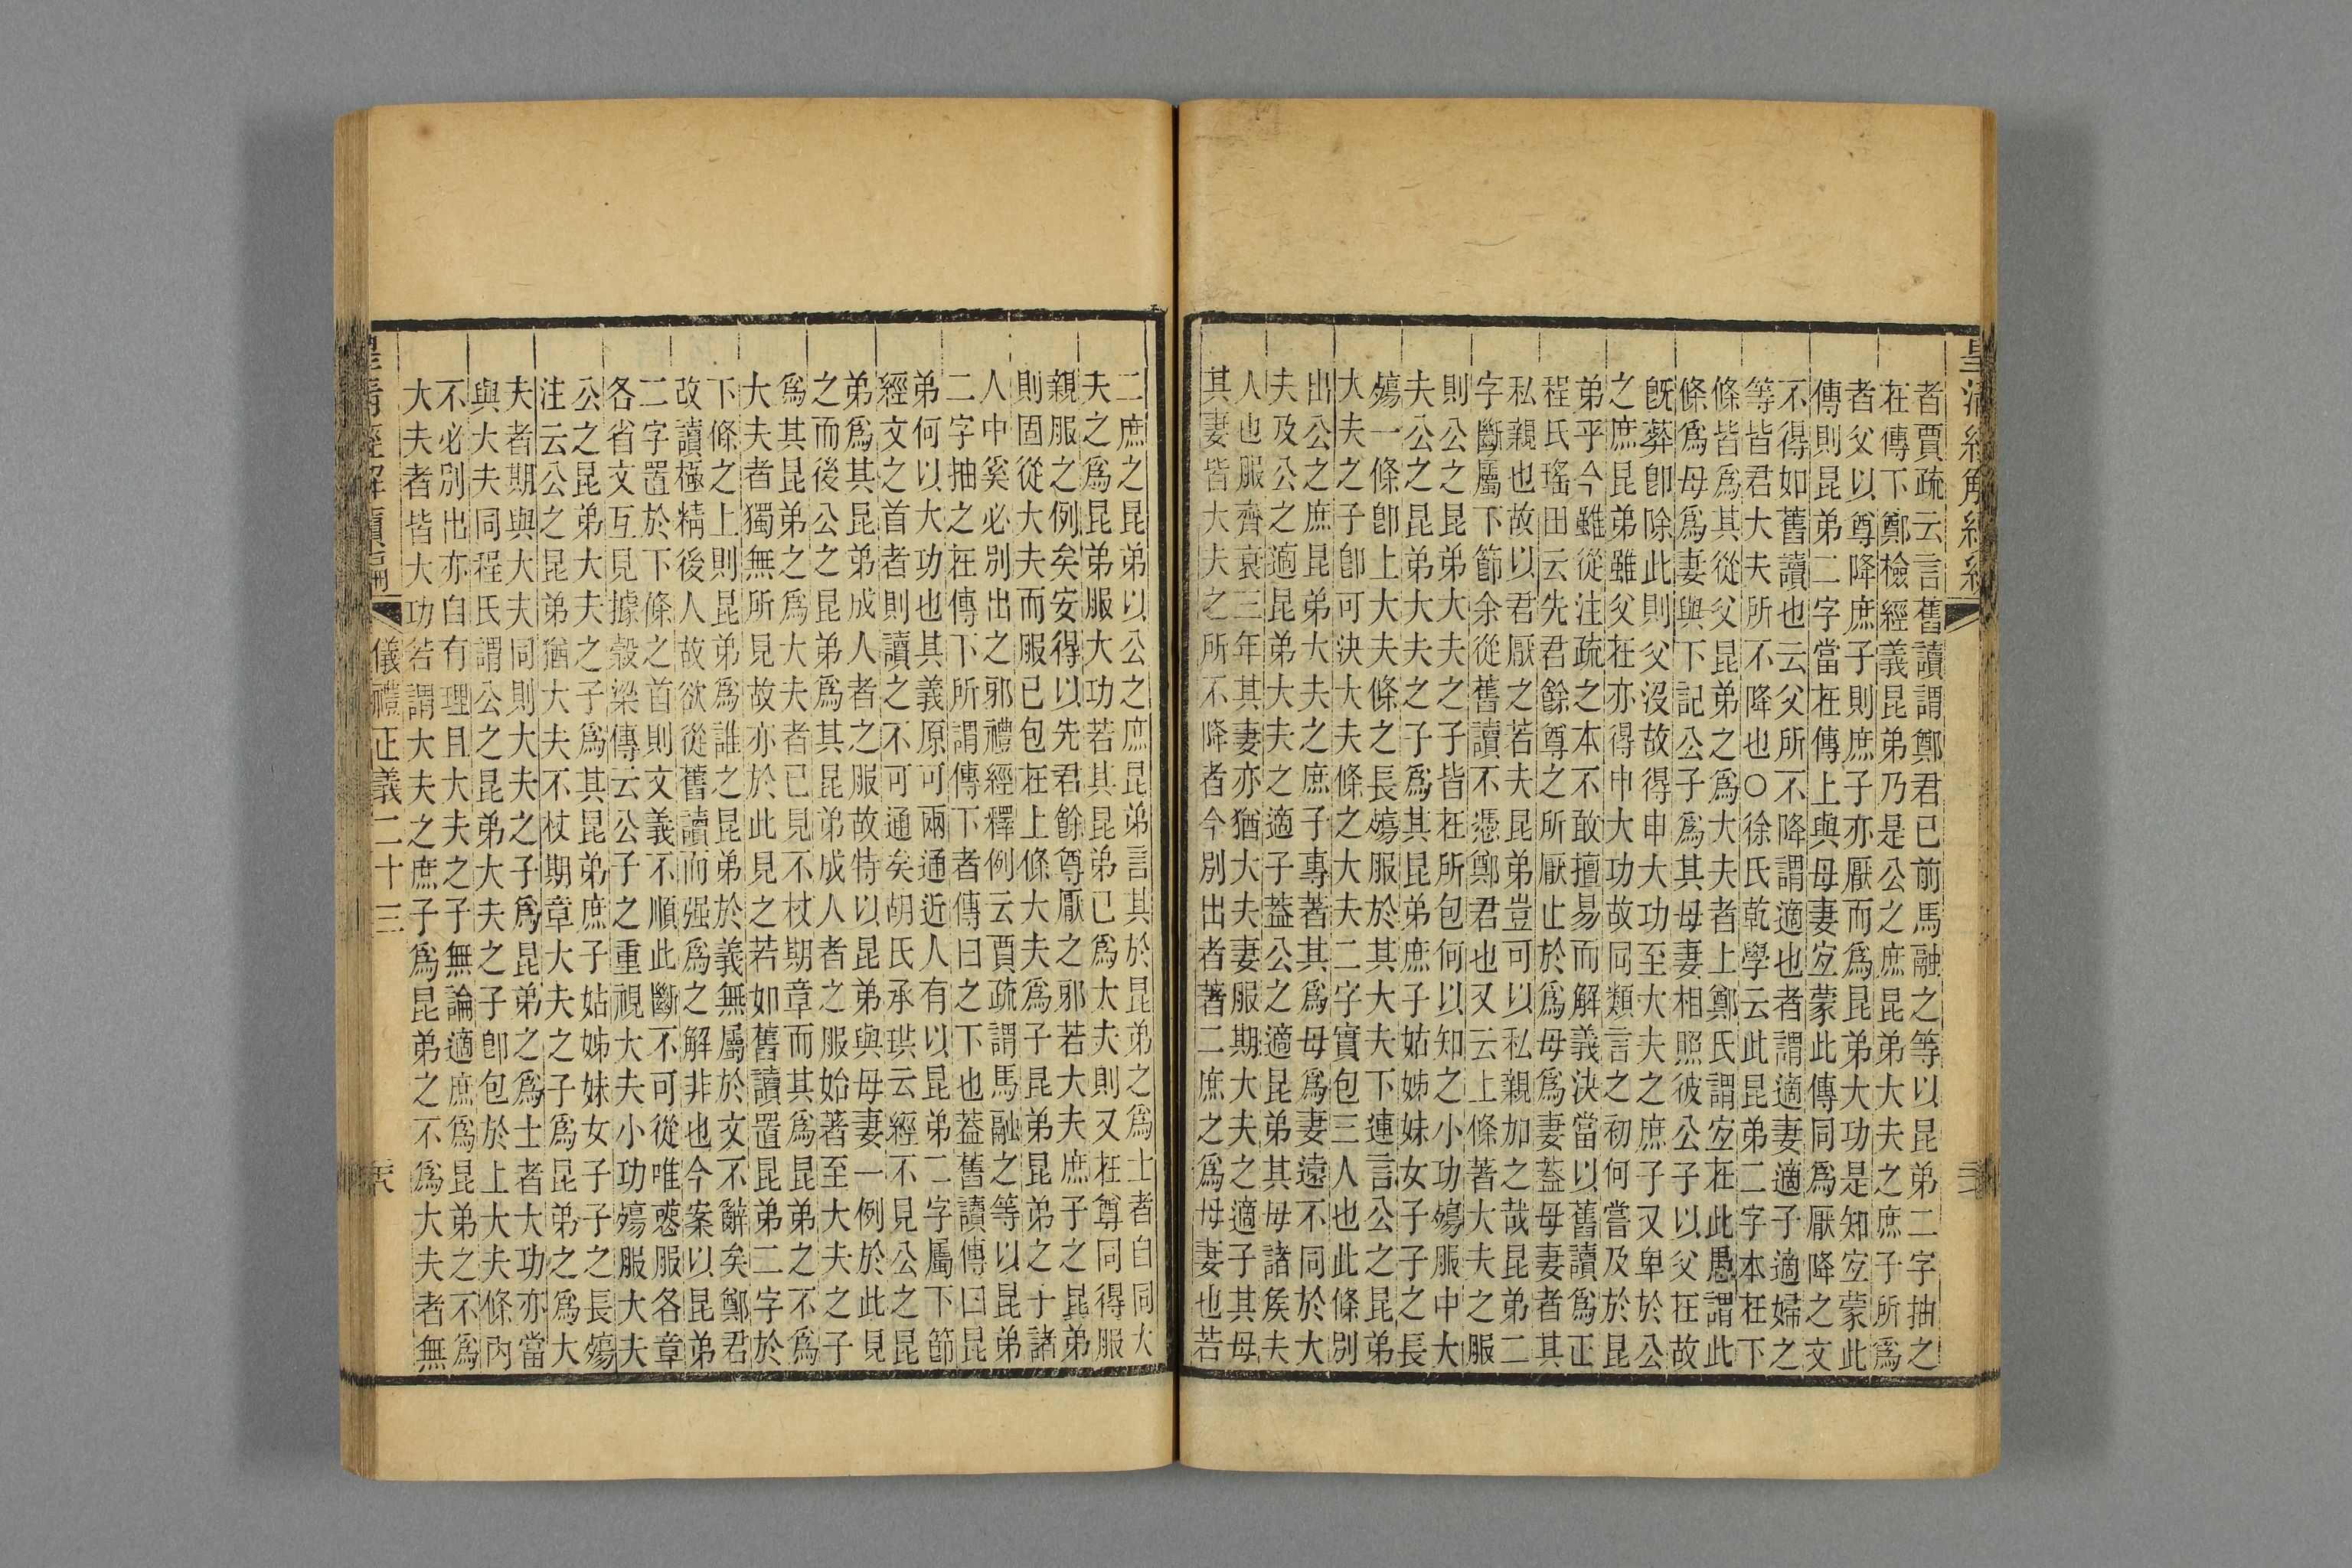 皇清經解續編
者賈疏云言舊讀謂鄭君已前馬融之等以昆弟二字抽之
在傳下鄭檢經義昆弟乃是公之庶昆弟大夫之庶子所爲
者父以尊降庶子則庶子亦厭而爲昆弟大功是知宐蒙此
傳則昆弟二字當在傳上與母妻宐蒙此傳同爲厭降之文
不得如舊讀也云父所不降謂適也者謂適妻適子適婦之
等皆君大夫所不降也○徐氏乾學云此昆弟二字本在下
條皆爲其從父昆弟之爲大夫者上鄭氏謂宐在此愚謂此
條爲母爲妻與下記公子爲其母妻相照彼公子以父在故
旣葬卽除此則父沒故得申大功至大夫之庶子又卑於公
之庶昆弟雖父在亦得申大功故同類言之初何嘗及於昆
弟乎今雖從注疏之本不敢擅易而解義決當以舊讀爲正
程氏瑤田云先君餘尊之所厭止於爲母爲妻蓋母妻者其
私親也故以君厭之若夫昆弟豈可以私親加之哉昆弟二
字斷屬下節余從舊讀不憑鄭君也又云上條著大夫之服
則公之昆弟大夫之子皆在所包何以知之小功殤服中大
夫公之昆弟大夫之子爲其昆弟庶子姑姊妹女子子之長
殤一條卽上大夫條之長殤服於其大夫下連言公之昆弟
大夫之子卽可決大夫條之大夫二字實包三人也此條別
出公之庶昆弟大夫之庶子專著其爲母爲妻遠不同於大
夫及公之適昆弟大夫之適子蓋公之適昆弟其母諸矦夫
人也服齊衰三年其妻亦猶大夫妻服期大夫之適子其母
其妻皆大夫之所不降者今別出者著二庶之爲母妻也若
二庶之昆弟以公之庶昆弟言其於昆弟之爲士者自同大
夫之爲昆弟服大功若其昆弟已爲大夫則又在尊同得服
親服之例矣安得以先君餘尊厭之邪若大夫庶子之昆弟
則固從大夫而服已包在上條大夫爲子昆弟昆弟之子諸
人中奚必別出之邪禮經釋例云賈疏謂馬融之等以昆弟
二字抽之在傳下所謂傳下者傳曰之下也蓋舊讀傳曰昆
弟何以大功也其義原可兩通近人有以昆弟二字屬下節
經文之首者則讀之不可通矣胡氏承珙云經不見公之昆
弟爲其昆弟成人者之服故特以昆弟與母妻一例於此見
之而後公之昆弟爲其昆弟成人者之服始著至大夫之子
爲其昆弟之爲大夫者已見不杖期章而其爲昆弟之不爲
大夫者獨無所見故亦於此見之若如舊讀置昆弟二字於
下條之上則昆弟爲誰之昆弟於義無屬於文不辭矣鄭君
改讀極精後人故欲從舊讀而强爲之解非也今案以昆弟
二字置於下條之首則文義不順此斷不可從唯惑服各章
各省文互見據穀梁傳云公子之重視大夫小功殤服大夫
公之昆弟大夫之子爲其昆弟庶子姑姊妹女子子之長殤
注云公之昆弟猶大夫不杖期章大夫之子爲昆弟之爲大
夫者期與大夫同則大夫之子爲昆弟之爲士者大功亦當
與大夫同程氏謂公之昆弟大夫之子卽包於上大夫條內
不必別出亦自有理且大夫之子無論適庶爲昆弟之不爲
大夫者皆大功若謂大夫之庶子爲昆弟之不爲大夫者無
皇清經解續編 儀禮正義二十三